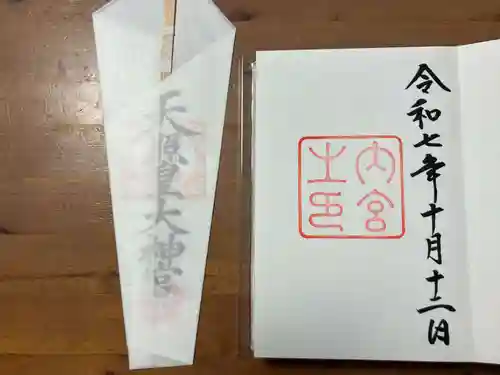 天照皇大神宮
令和七年十月十二日
内宮
之印